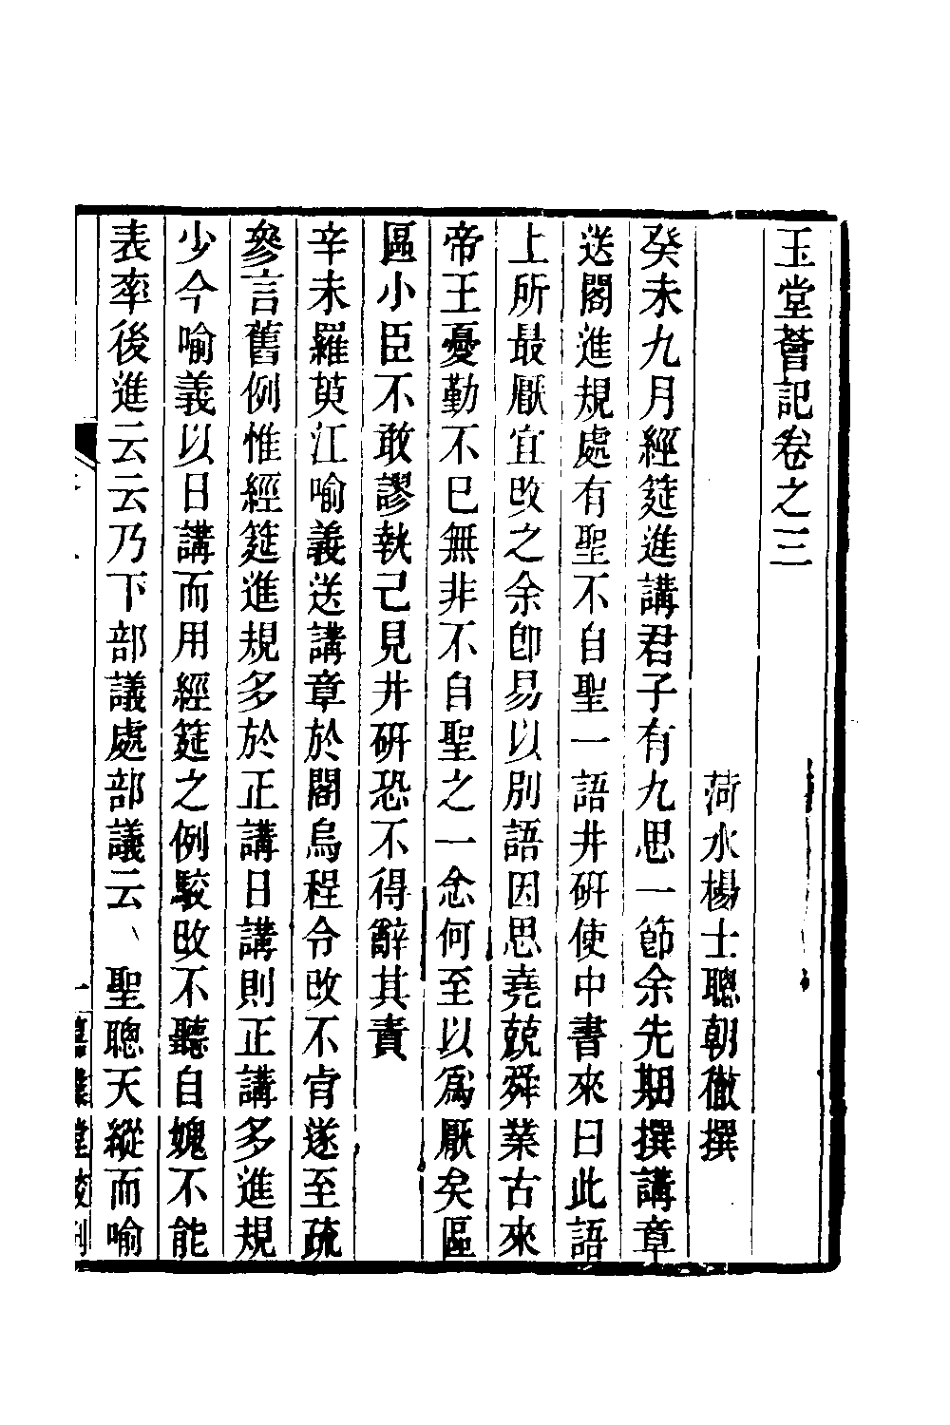 玉堂薈記卷之三
菏水楊士聰朝徹撰
癸未九月經筵進講君子有九思一節余先期撰講章
送閣進規處有聖不自聖一語井研使中書來曰此語
上所最厭宜改之余卽易以別語因思堯兢舜業古來
帝王憂勤不已無非不自聖之一念何至以爲厭矣區
區小臣不敢謬執己見井研恐不得辭其責
辛未羅萸江喻義送講章於閣烏程令改不肯遂至疏
參言舊例惟經筵進規多於正講日講則正講多進規
少今喻義以日講而用經筵之例駮改不聽自媿不能
表率後進云云乃下部議處部議云、聖聰天縱而喻